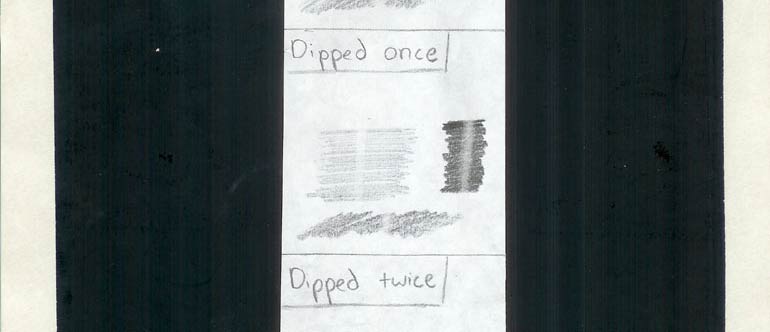 Dipped once
Dipped twice